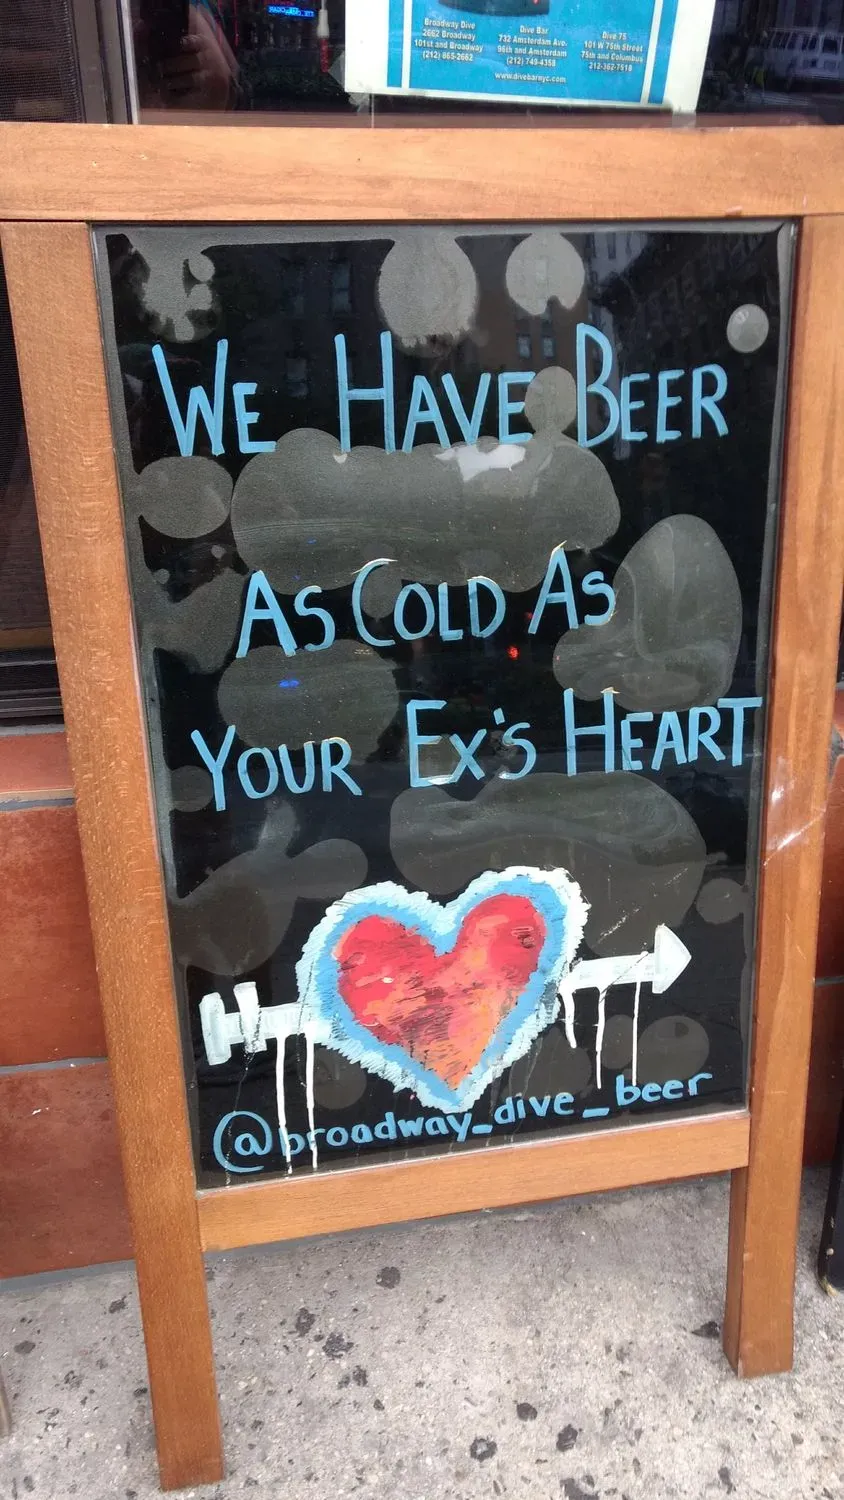 Broadway Dive
2662 Broadway
101st and Broadway
(212) 865-2662
Dive Bar
732 Amsterdam Ave.
96th and Amsterdam
(212) 749-4358
Dive 75
101 W 75th Street
75th and Columbus
212-362-7518
www.divebarnyc.com
WE HAVE BEER
AS COLD AS
YOUR EX'S HEART
@broadway_dive_beer